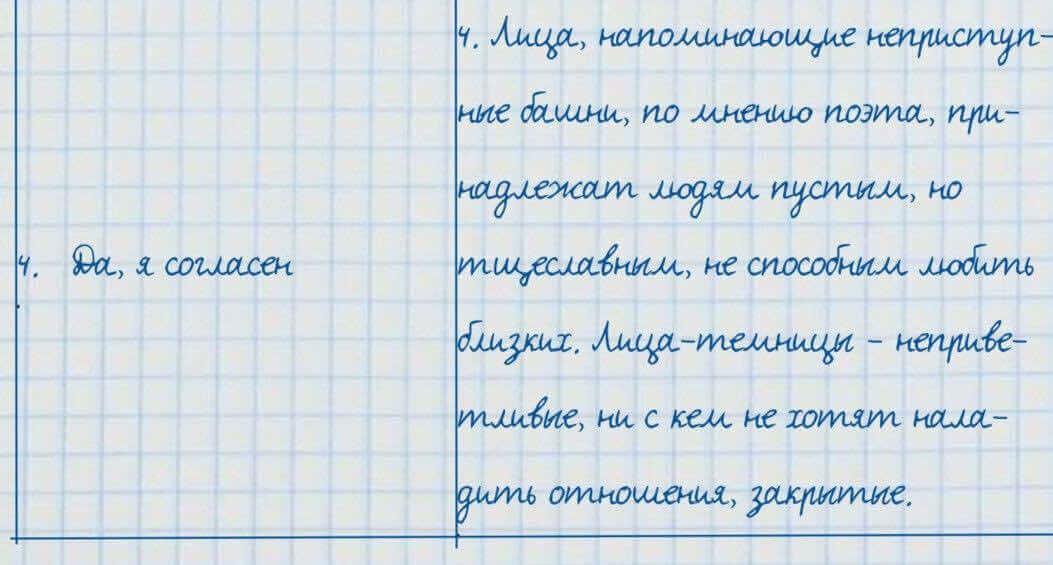 4. Лица, напоминающие неприступ-
ные башни, по мнению поэта, при-
надлежат людям пустым, но
4. Да, я согласен
тщеславным, не способным любить
близких. Лица-темницы - неприве-
тливые, ни с кем не хотят нала-
дить отношения, закрытые.